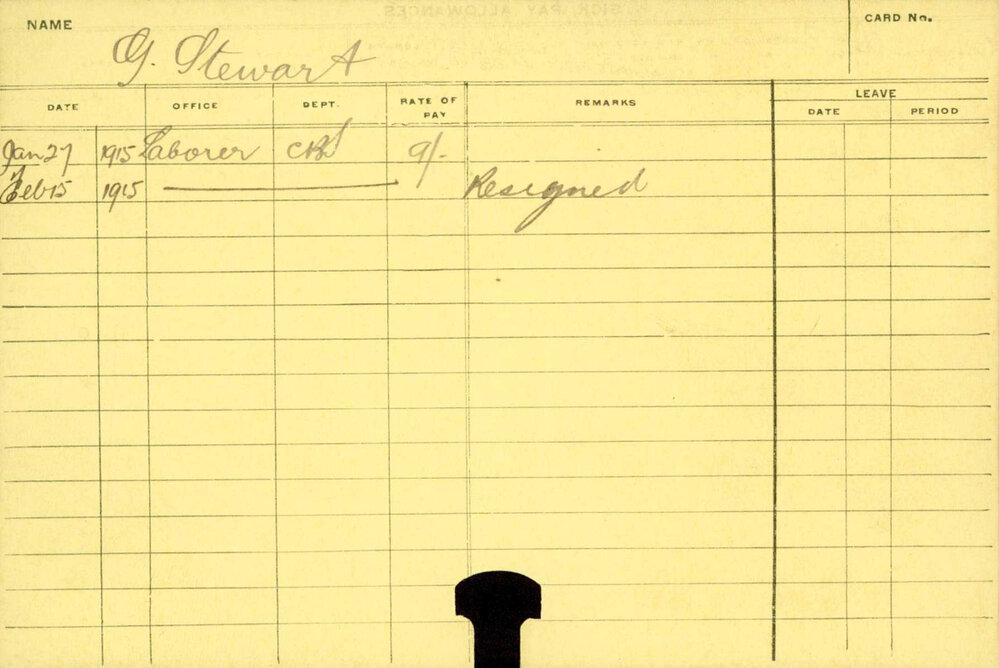 NAME G. Stewart CARD No.
DATE OFFICE DEPT. RATE OF PAY REMARKS LEAVE
DATE PERIOD
Jan 27 1915 Laborer 9/-
Feb 15 1915 Resigned
SICK PAY ALLOWANCES